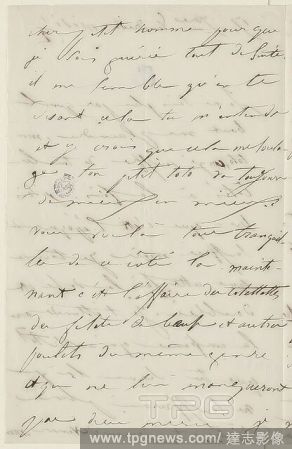 cher petit homme pour que
je sois guérie tout de suite
il me semble qu'en te
disant cela tu m'entends
et je crois que cela me soula
ge. ton petit toto va toujours
de mieux en mieux
me voilà tranquil
le de ce côté là maint
nant c'est l'affaire des
du filet de bœuf et autres
poulets du même genre
et qui ne lui manqueront
pas dieu merci. je
TPG
www.tpgnews.com 達志影像